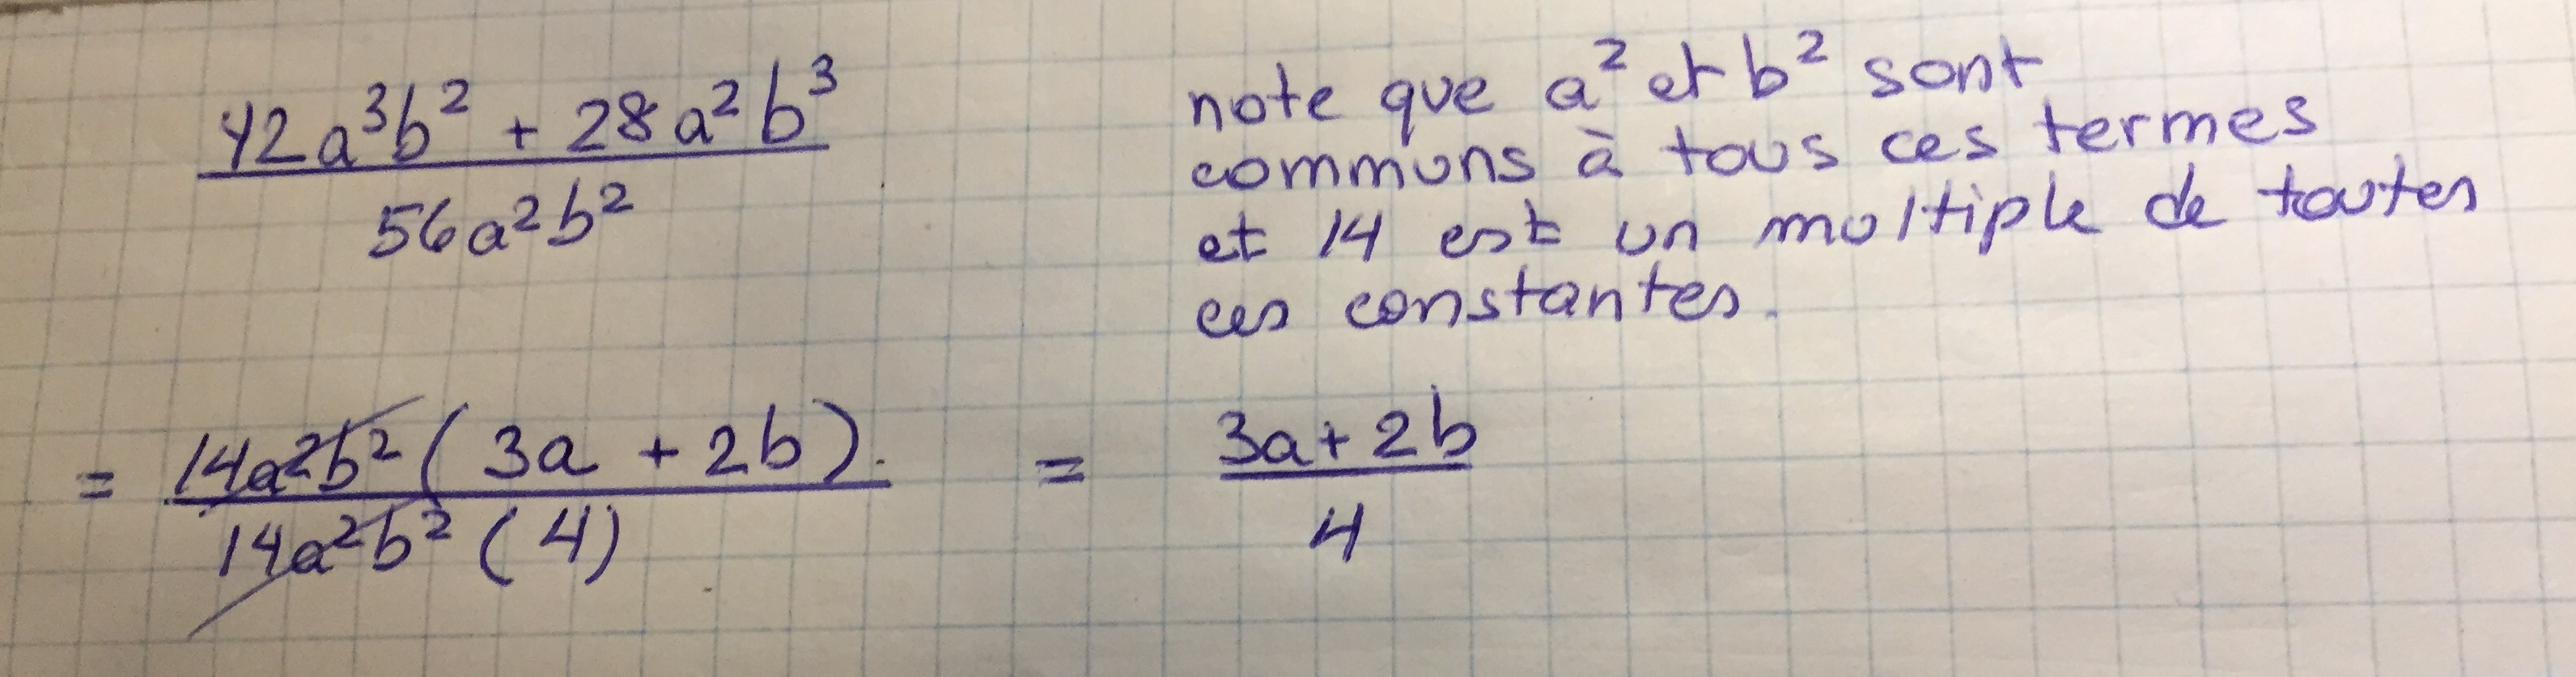 42a³b² + 28a²b³
56a²b²
note que a² et b² sont
communs à tous ces termes
et 14 est un multiple de toutes
ces constantes.
= 14a²b² (3a + 2b). = 3a+2b
14a²b² (4) 4